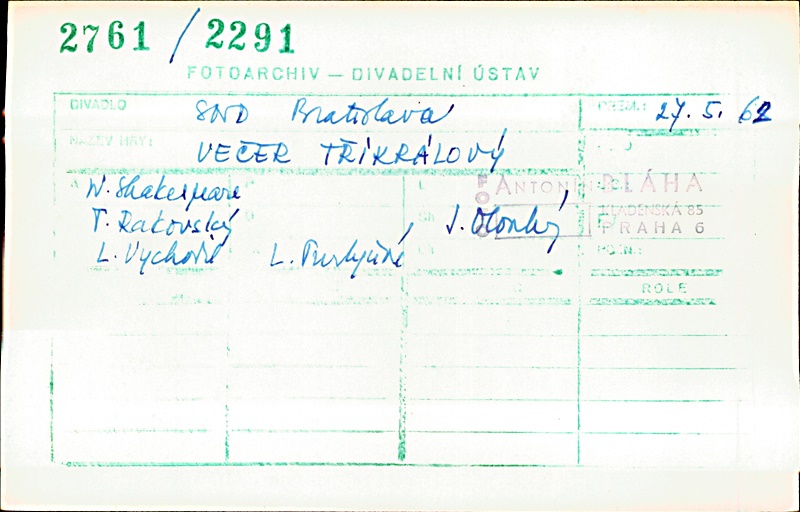 2761 / 2291
FOTOARCHIV — DIVADELNÍ ÚSTAV
DIVADLO SND Bratislava PREM.: 27. 5. 62
NÁZEV HRY: VEČER TŘÍKRÁLOVÝ
W. Shakespeare FOTO ANTONÍN BLÁHA
T. Rakovský J. KLADENSKÁ 85
PRAHA 6
L. Vychodil L. POZN.:
ROLE